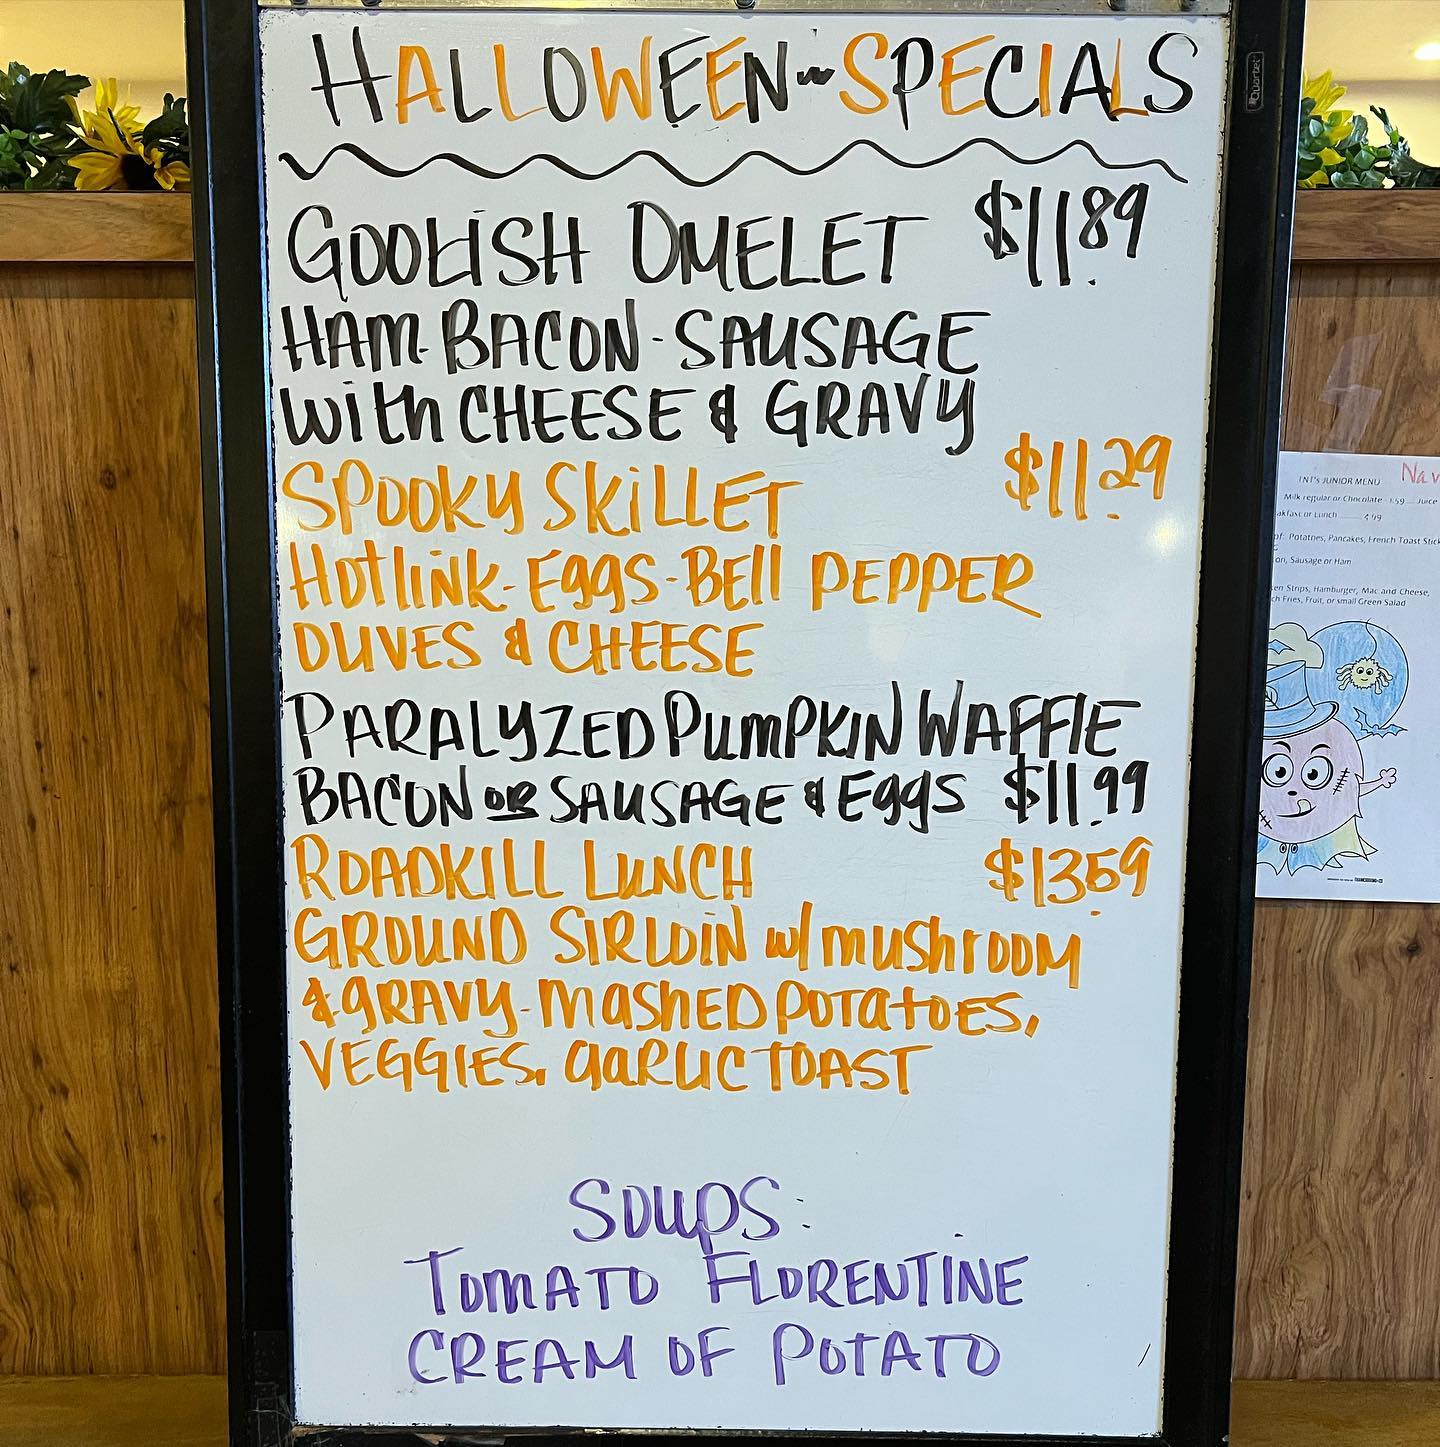 HALLOWEEN~SPECIALS
GOOLISH OMELET $11.89
HAM-BACON-SAUSAGE
with CHEESE & GRAVY
SPOOKY SKILLET $11.29
HOTlink-Eggs-Bell PEPPER
OLIVES & CHEESE
PARALYZED PumPKIN WAFFlE
BACON OR SAUSAGE & Eggs $11.99
ROADKILL LUNCH $13.59
GROUND SIRLOIN w/ mushroom
& gRAVY-mashED POTatoES,
VEGGIES, GaRLIC TOAST
Soups:
TomATO FLORENTINE
CREAM OF POTATO
Quartet
TNT's JUNIOR MENU
Milk regular or Chocolate 1.59 Juice
or Lunch
Potatoes, Pancakes, French Toast Stick
Sausage or Ham
Strips, Hamburger, Mac and Cheese,
Fries, Fruit, or small Green Salad